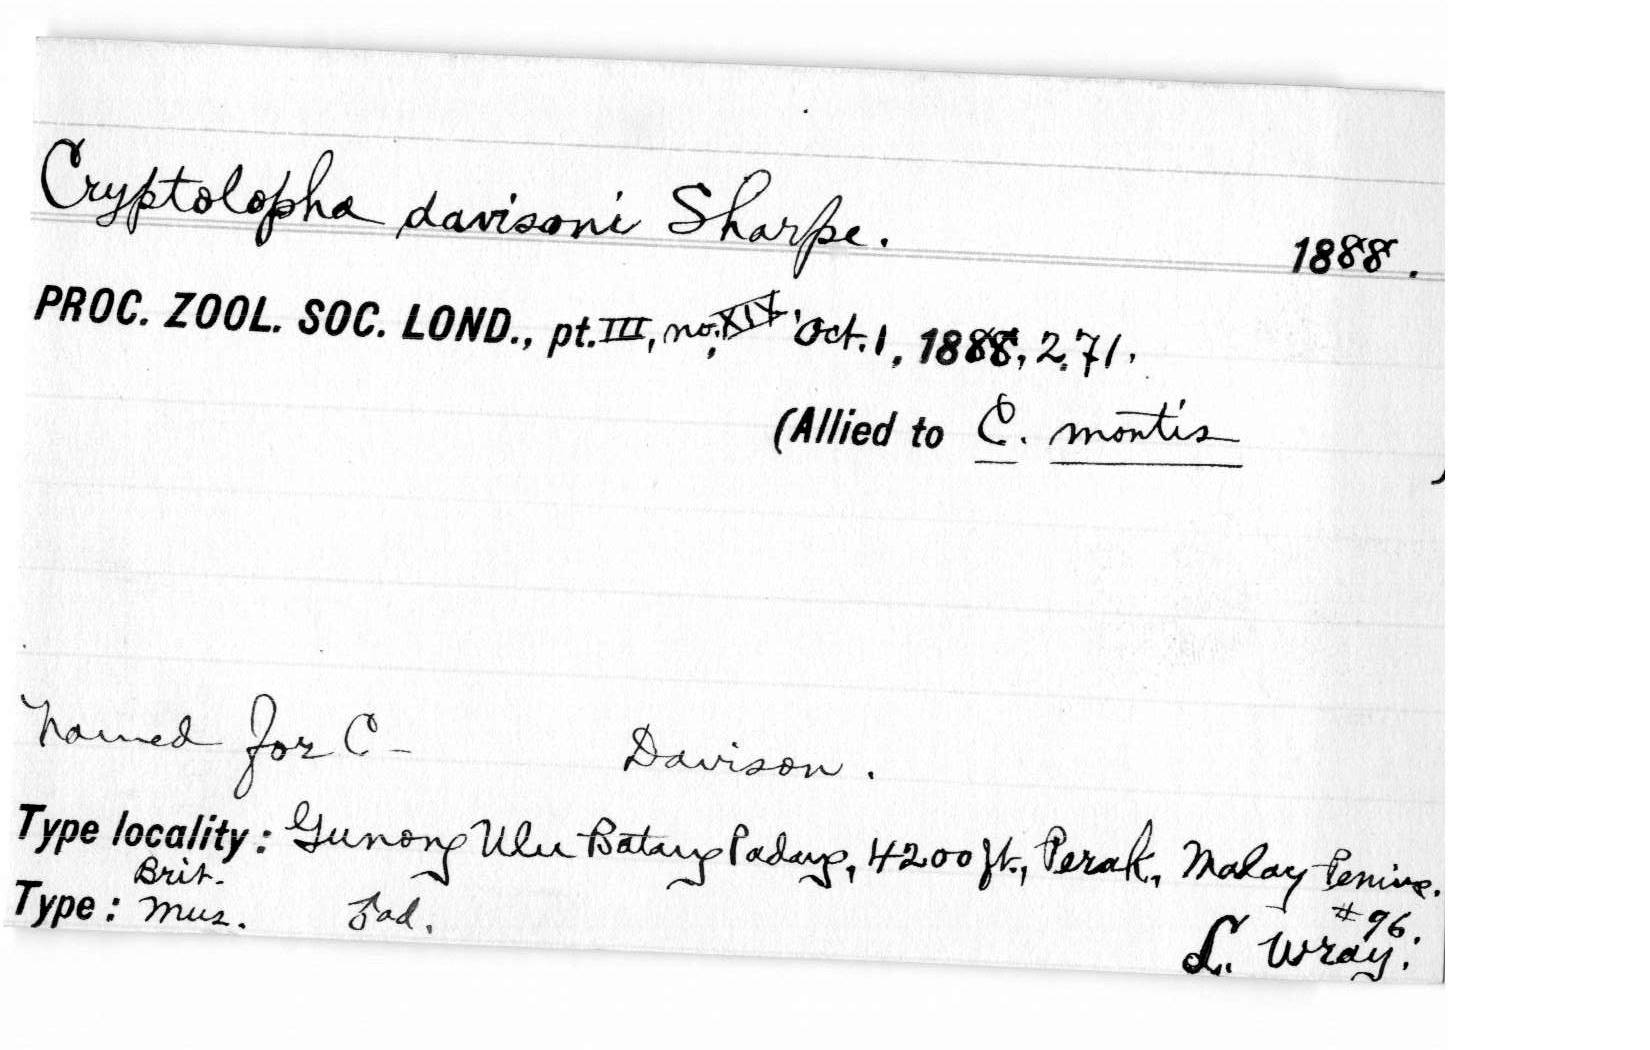 Cryptolopha davisoni Sharpe. 1888.
PROC. ZOOL. SOC. LOND., pt. III, no. XIX, Oct. 1, 1888, 271.
(Allied to C. montis )
Named for C- Davison.
Type locality: Gunong Ulu Batang Padang, 4200 ft., Perak, Malay Penins.
Type: Brit. Mus. ad. #96.
L. Wray.